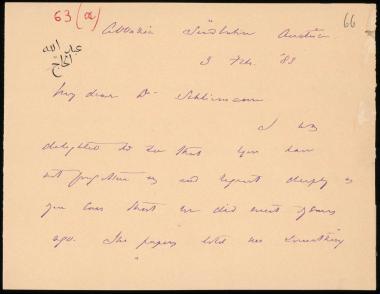 63 (a)
66
عبد الله
الحاج
Abbazia Südbahn Austria
3 Feb. '83
My dear Dr Schliemann
I was
delighted to see that you have
not forgotten us and regret deeply as
you does that we did meet years
ago. The papers told us something